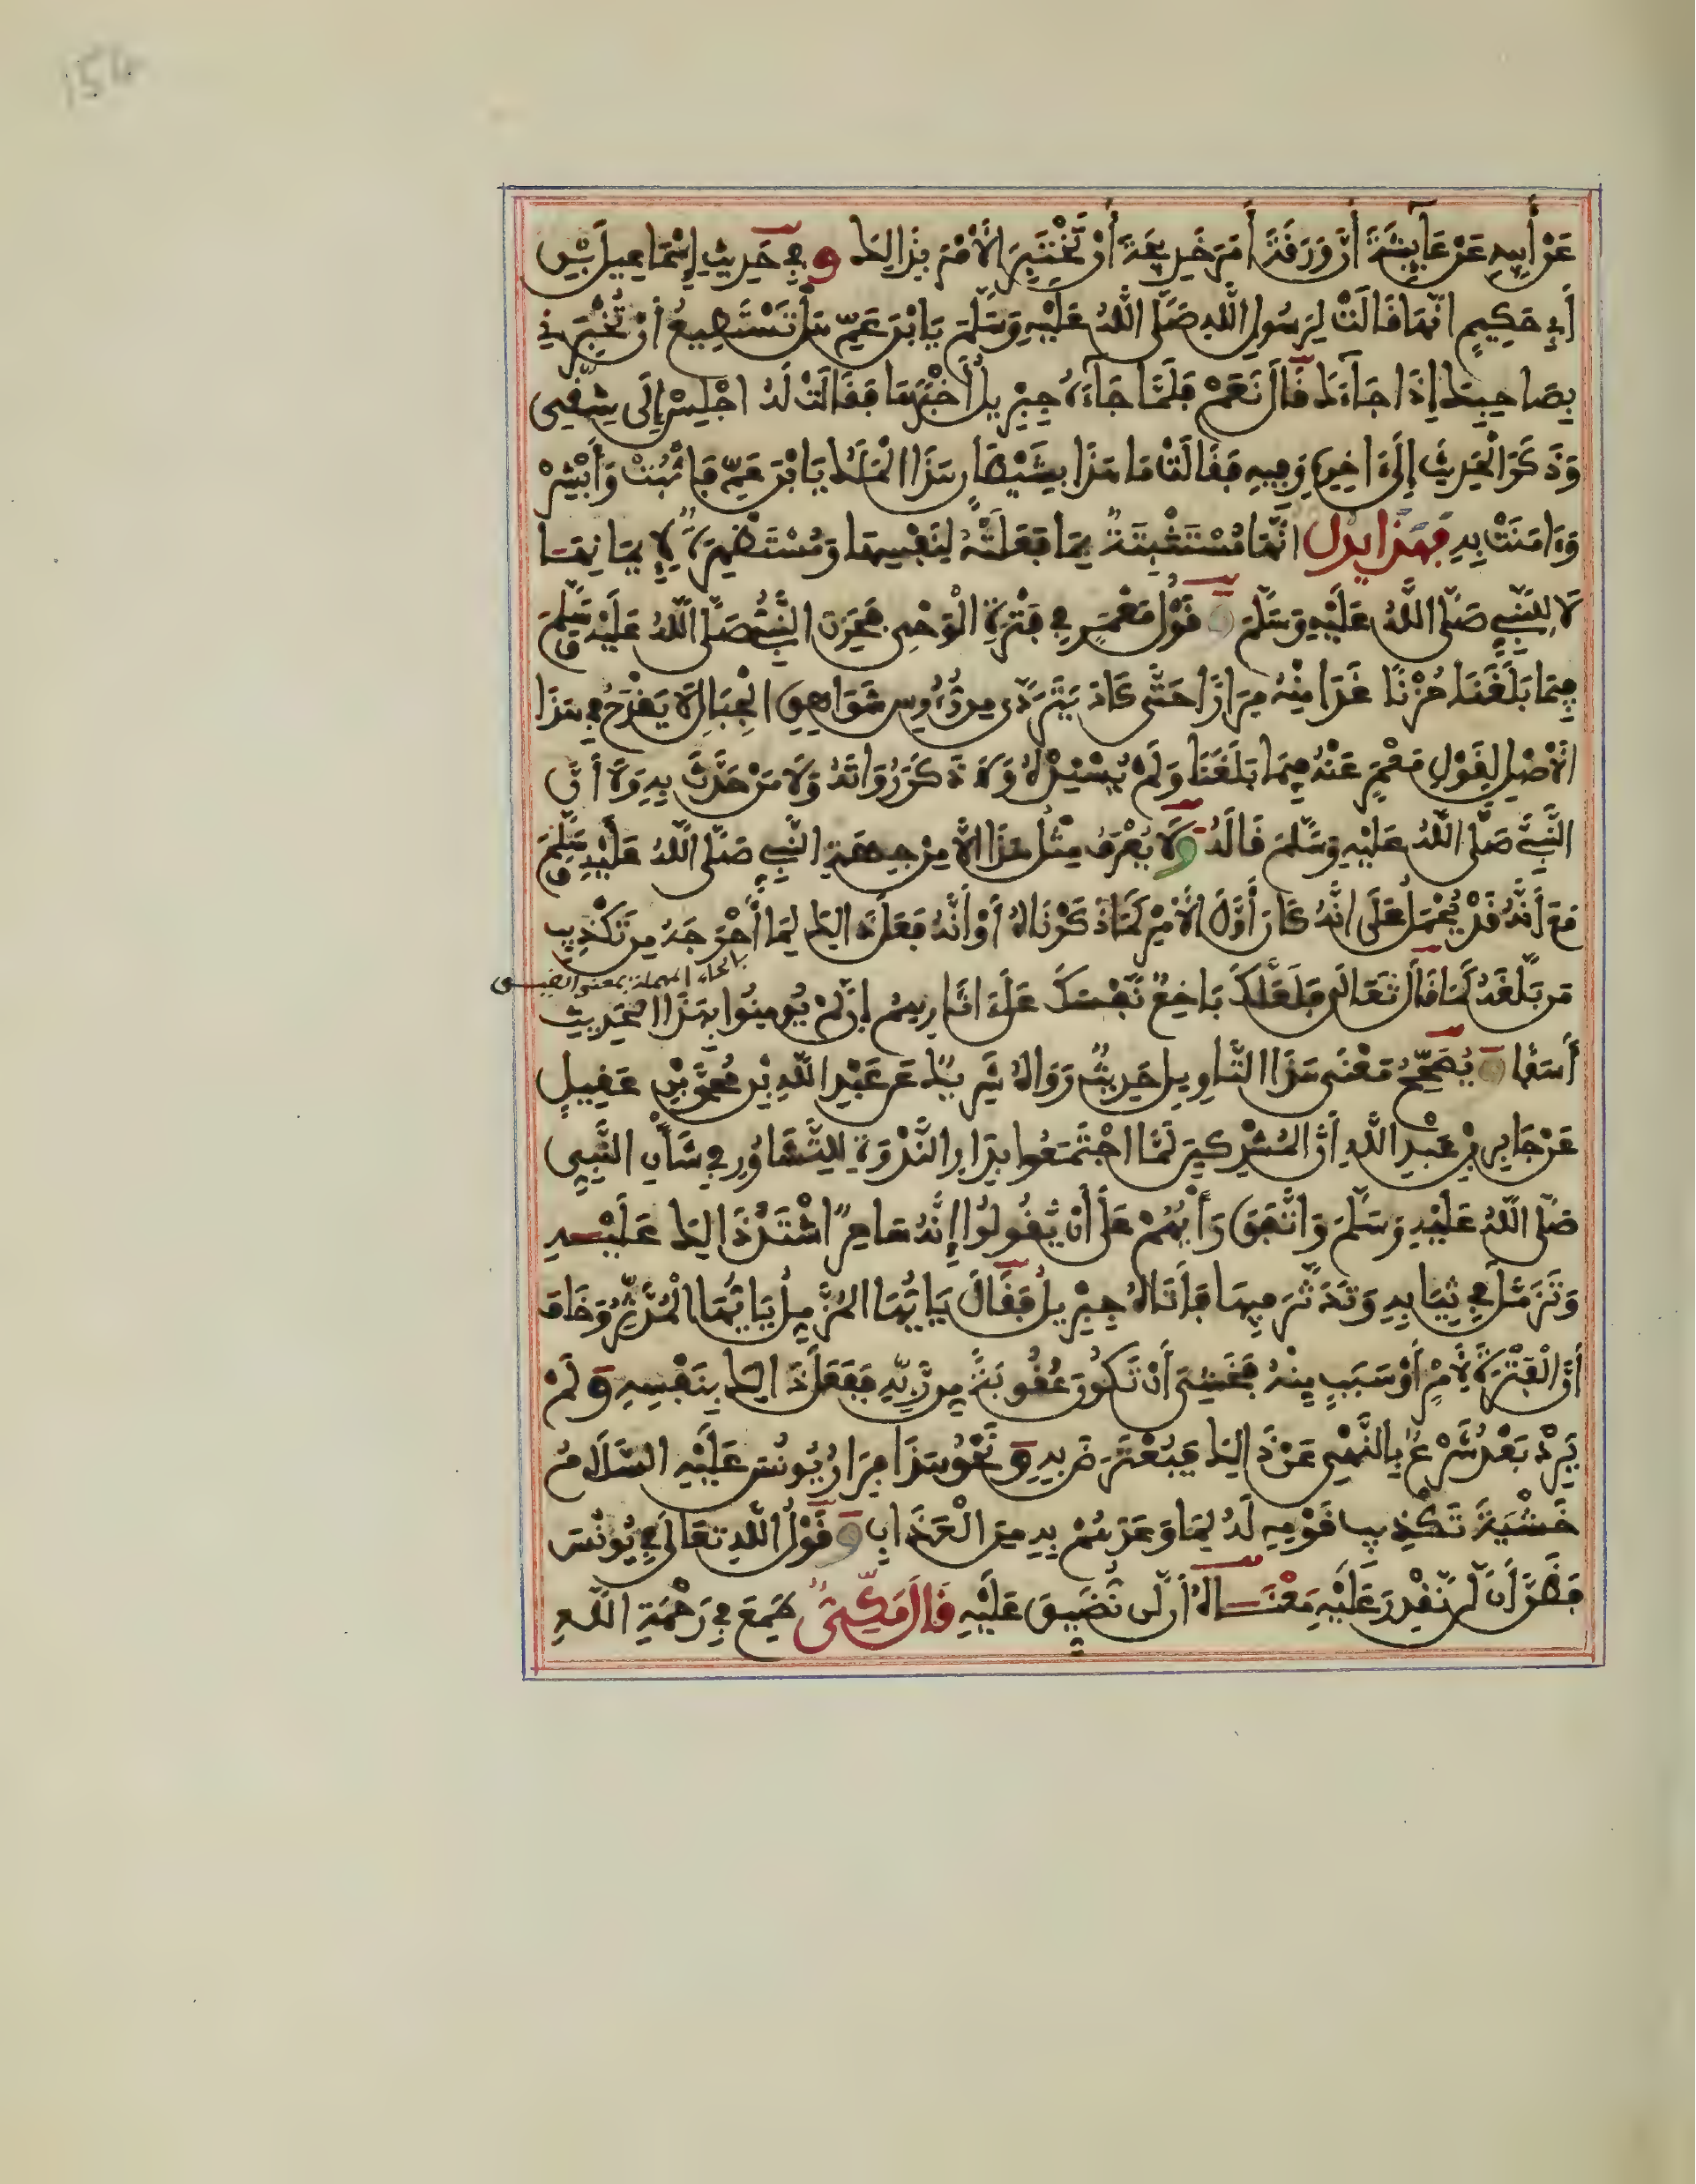 154
عَنْ أَبِيهِ عَنْ عَائِشَةَ أَنَّ وَرَقَةَ أَمَرَ خَدِيجَةَ أَنْ تَخْتَبِرَ الْأَمْرَ بِذَالِكَ وَفِي حَدِيثِ إِسْمَاعِيلَ بْنِ
أَبِي حَكِيمٍ أَنَّهَا قَالَتْ لِرَسُولِ اللهِ صَلَّى اللهُ عَلَيْهِ وَسَلَّمَ يَا ابْنَ عَمِّ هَلْ تَسْتَطِيعُ أَنْ تُخْبِرَنِي
بِصَاحِبِكَ إِذَا جَاءَكَ قَالَ نَعَمْ فَلَمَّا جَاءَهُ جِبْرِيلُ أَخْبَرَهَا فَقَالَتْ لَهُ اجْلِسْ إِلَى شِقِّي
وَذَكَرَ الْحَدِيثَ إِلَى ءَاخِرِهِ وَفِيهِ فَقَالَتْ مَا هَذَا بِشَيْطَانٍ هَذَا الْمَلَكُ يَا ابْنَ عَمِّ فَاثْبُتْ وَأَبْشِرْ
وَءَامَنَتْ بِهِ فَهَذَا يَدُلُّ أَنَّهَا مُسْتَثْبِتَةٌ بِمَا فَعَلَتْهُ لِنَفْسِهَا وَمُسْتَظْهِرَةٌ لِإِيمَانِهَا
لَا لِلنَّبِيِّ صَلَّى اللهُ عَلَيْهِ وَسَلَّمَ وَقَوْلُ مَعْمَرٍ فِي فَتْرَةِ الْوَحْيِ فَحَزِنَ النَّبِيُّ صَلَّى اللهُ عَلَيْهِ وَسَلَّمَ
فِيمَا بَلَغَنَا حُزْنًا غَدَا مِنْهُ مِرَارًا حَتَّى كَادَ يَتَرَدَّى مِنْ رُءُوسِ شَوَاهِقِ الْجِبَالِ لَا يَقْدَحُ فِي هَذَا
الْأَصْلِ لِقَوْلِ مَعْمَرٍ عَنْهُ فِيمَا بَلَغَنَا وَلَمْ يُسْنِدْهُ وَلَا ذَكَرَ رُوَاتَهُ وَلَا مَنْ حَدَّثَ بِهِ وَلَا أَنَّ
النَّبِيَّ صَلَّى اللهُ عَلَيْهِ وَسَلَّمَ قَالَهُ وَلَا يُعْرَفُ مِثْلُ هَذَا إِلَّا مِنْ جِهَةِ النَّبِيِّ صَلَّى اللهُ عَلَيْهِ وَسَلَّمَ
مَعَ أَنَّهُ قَدْ يُحْمَلُ عَلَى أَنَّهُ كَانَ أَوَّلَ الْأَمْرِ كَمَا ذَكَرْنَاهُ أَوْ أَنَّهُ فَعَلَ ذَالِكَ لِمَا أَحْرَجَهُ مِنْ تَكْذِيبِ
بالحاء المهملة بمعنى الضيق
مَنْ بَلَّغَهُ كَمَا قَالَ تَعَالَى فَلَعَلَّكَ بَاخِعٌ نَفْسَكَ عَلَى ءَاثَارِهِمْ إِنْ لَمْ يُومِنُوا بِهَذَا الْحَدِيثِ
أَسَفًا وَيُصَحِّحُ مَعْنَى هَذَا التَّاوِيلِ حَدِيثٌ رَوَاهُ شَرِيكٌ عَنْ عَبْدِ اللهِ بْنِ مُحَمَّدِ بْنِ عَقِيلٍ
عَنْ جَابِرِ بْنِ عَبْدِ اللهِ أَنَّ الْمُشْرِكِينَ لَمَّا اجْتَمَعُوا بِدَارِ النَّدْوَةِ لِلتَّشَاوُرِ فِي شَأْنِ النَّبِيِّ
صَلَّى اللهُ عَلَيْهِ وَسَلَّمَ وَاتَّفَقَ رَأْيُهُمْ عَلَى أَنْ يَقُولُوا إِنَّهُ سَاحِرٌ اشْتَدَّ ذَالِكَ عَلَيْهِ
وَتَزَمَّلَ فِي ثِيَابِهِ وَتَدَثَّرَ فِيهَا فَأَتَاهُ جِبْرِيلُ فَقَالَ يَا يُّهَا الْمُزَّمِّلُ يَا يُّهَا الْمُدَّثِّرُ وَخَافَ
أَنَّ الْفَتْرَةَ لِأَمْرٍ أَوْ سَبَبٍ مِنْهُ فَخَشِيَ أَنْ تَكُونَ عُقُوبَةً مِنْ رَبِّهِ فَفَعَلَ ذَالِكَ بِنَفْسِهِ وَلَمْ
يَرِدْ بَعْدُ شَرْعٌ بِالنَّهْيِ عَنْ ذَالِكَ فَيُعْتَرَضَ بِهِ وَنَحْوُ هَذَا فِرَارُ يُونُسَ عَلَيْهِ السَّلَامُ
خَشْيَةَ تَكْذِيبِ قَوْمِهِ لَهُ لِمَا وَعَدَهُمْ بِهِ مِنَ الْعَذَابِ وَقَوْلُ اللهِ تَعَالَى فِي يُونُسَ
فَظَنَّ أَنْ لَنْ نَقْدِرَ عَلَيْهِ مَعْنَاهُ أَنْ لَنْ نُضَيِّقَ عَلَيْهِ قَالَ مَكِّيٌّ طَمِعَ فِي رَحْمَةِ اللهِ